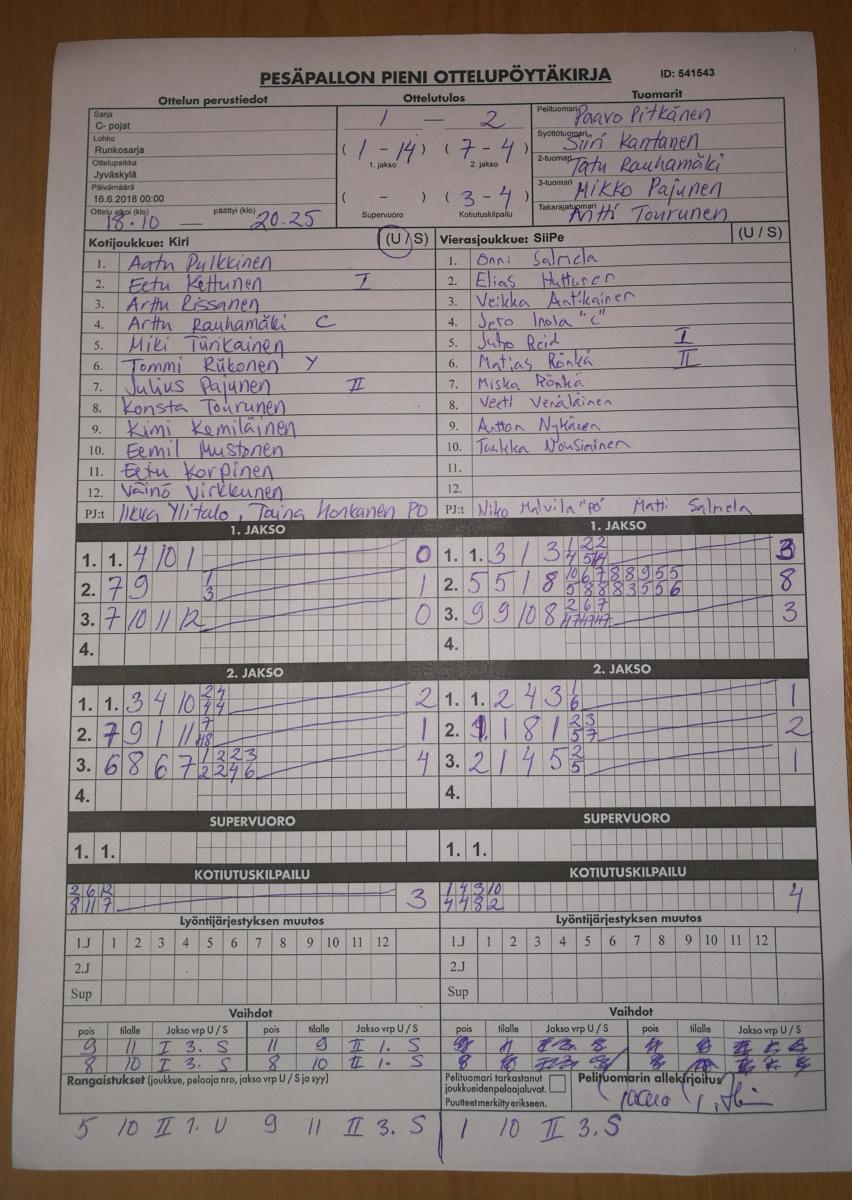 PESÄPALLON PIENI OTTELUPÖYTÄKIRJA ID: 541543
Ottelun perustiedot Ottelutulos Tuomarit
Sarja
C- pojat
Lohko
Runkosarja
Ottelupaikka
Jyväskylä
Päivämäärä
16.6.2018 00:00
Ottelu alkoi (klo) päättyi (klo)
18.10 — 20.25
1 — 2
( 1 - 14 ) ( 7 - 4 )
1. jakso 2. jakso
( - ) ( 3 - 4 )
Supervuoro Kotiutuskilpailu
Pelituomari Paavo Pitkänen
Syöttötuomari Siiri Kantanen
2-tuomari Tatu Rauhamäki
3-tuomari Mikko Pajunen
Takarajatuomari Antti Tourunen
Kotijoukkue: Kiri (U / S)
1. Aatu Pulkkinen
2. Eetu Kettunen I
3. Arttu Rissanen
4. Arttu Rauhamäki C
5. Miki Tiirikainen
6. Tommi Riikonen Y
7. Julius Pajunen II
8. Konsta Tourunen
9. Kimi Kemiläinen
10. Eemil Mustonen
11. Eetu Korpinen
12. Väinö Virkkunen
PJ:t Ilkka Ylitalo, Taina Honkanen PO
Vierasjoukkue: SiiPe (U / S)
1. Onni Salmela
2. Elias
3. Veikka Antikainen
4. Jero Inola "C"
5. Juho Reid I
6. Matias Rönkä II
7. Miska Rönkä
8. Veeti Venäläinen
9. Anton Nykänen
10. Tuukka Nousiainen
11.
12.
PJ:t Niko Malvila "PO" Matti Salmela
1. JAKSO
1. 1. 4 10 1 0
2. 7 9 1 3 1
3. 7 10 11 12 0
4.
1. JAKSO
1. 1. 3 1 3 3
2. 5 5 1 8 8
3. 9 9 10 8 3
4.
2. JAKSO
1. 1. 3 4 10 2
2. 7 9 1 11 1
3. 6 8 6 7 4
4.
2. JAKSO
1. 1. 2 4 3 1 6 1
2. 1 8 1 2
3. 2 1 4 5 2 5 1
4.
SUPERVUORO
1. 1.
SUPERVUORO
1. 1.
KOTIUTUSKILPAILU
2 6 12
8 11 7
3
KOTIUTUSKILPAILU
1 4 3 10
4 4 8 2
4
Lyöntijärjestyksen muutos
1.J 1 2 3 4 5 6 7 8 9 10 11 12
2.J
Sup
Lyöntijärjestyksen muutos
1.J 1 2 3 4 5 6 7 8 9 10 11 12
2.J
Sup
Vaihdot
pois tilalle Jakso vrp U / S pois tilalle Jakso vrp U / S
9 11 I 3. S 11 9 II 1. S
8 10 I 3. S 8 10 II 1. S
Vaihdot
pois tilalle Jakso vrp U / S pois tilalle Jakso vrp U / S
Rangaistukset (joukkue, pelaaja nro, jakso vrp U / S ja syy)
Pelituomari tarkastanut
joukkueidenpelaajaluvat.
Puutteet merkitty erikseen.
Pelituomarin allekirjoitus
5 10 II 1. U 9 11 II 3. S 1 10 II 3. S